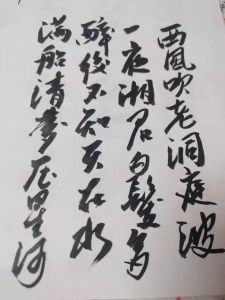 西風吹老洞庭波
一夜湘君白髮多
醉後不知天在水
滿船清夢压星河